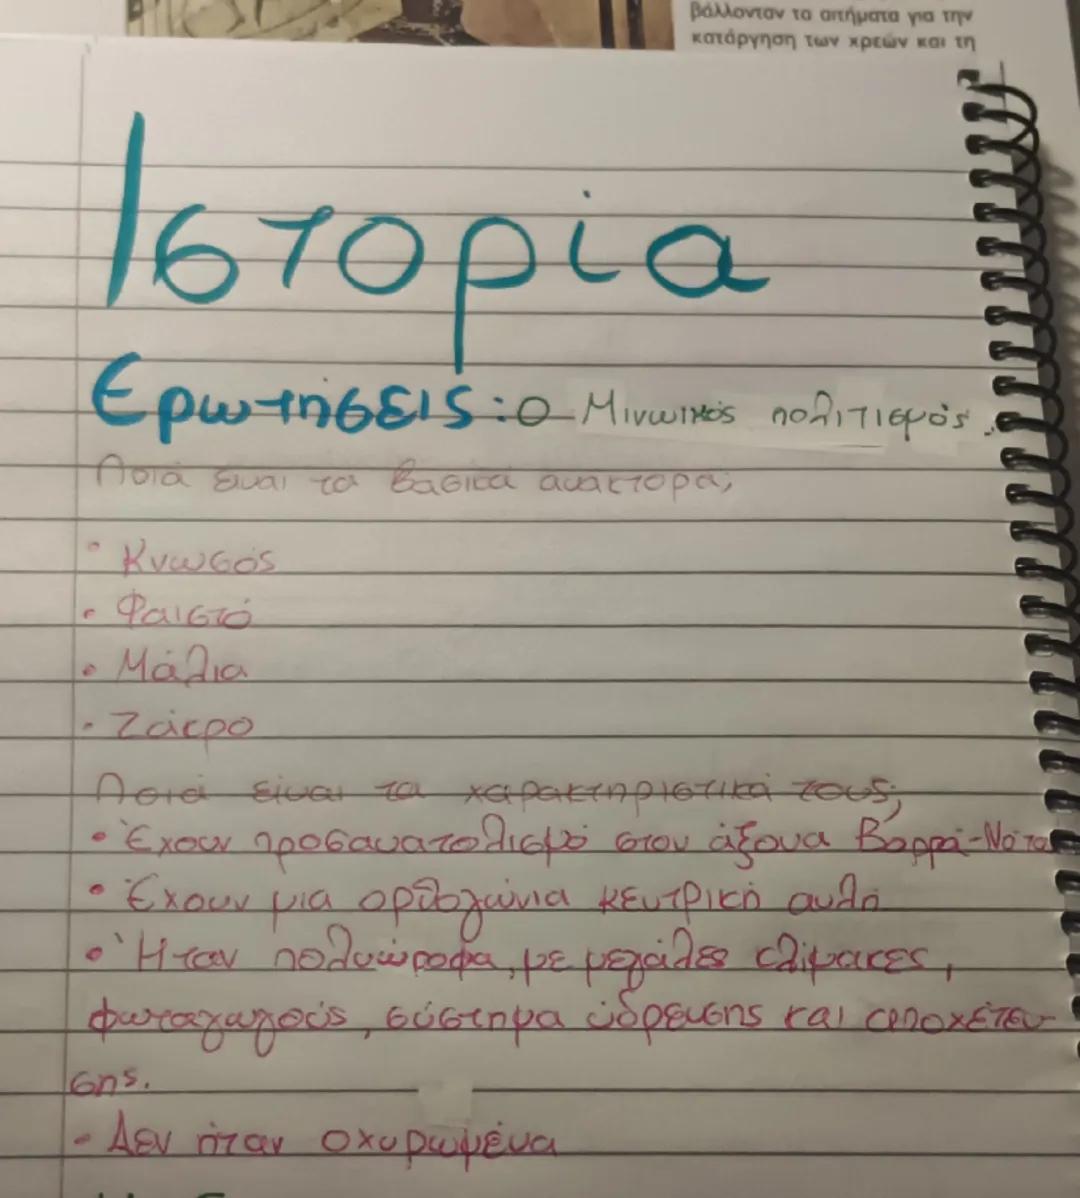 βάλλονταν τα αιτήματα για την
κατάργηση των χρεών και τη
Ιστορία
Ερωτήσεις: Ο Μινωικός πολιτισμός.
Ποιά είναι τα βασικά ανακτορα;
• Κνωσός
• Φαιστό
• Μάλια
• Ζάκρο
Ποιά είναι τα χαρακτηριστικά τους;
• Έχουν προσανατολισμό στον άξονα Βορρά-Νότα
• Έχουν μια ορθογώνια κεντρική αυλή
• Ήταν πολυώροφα, με μεγάλες κλίμακες,
φωταγωγούς, σύστημα ύδρευσης και αποχέτευ-
σης.
• Δεν ήταν οχυρωμένα